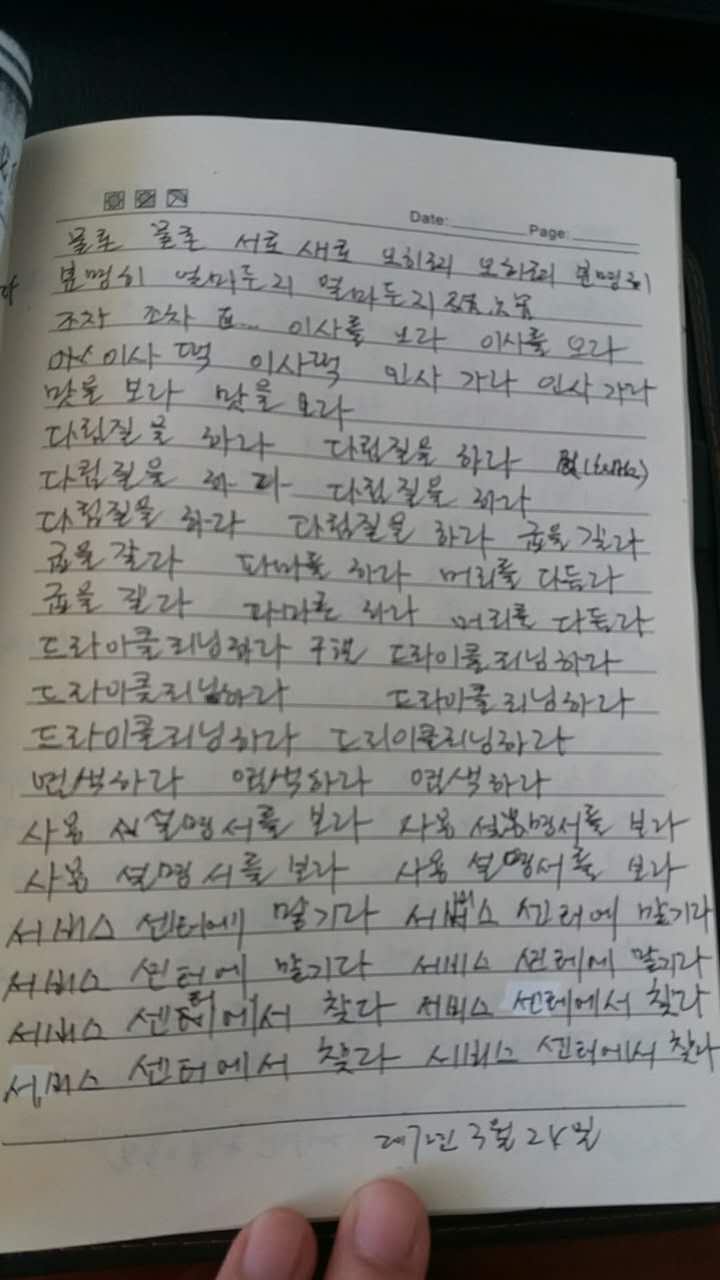 Date: Page:
물론 물론 서로 새로 오히려 오히려 분명히
분명히 얼마든지 얼마든지
조차 조차 이사를 오라 이사를 오라
이사 떡 이사떡 인사 가다 인사 가다
맛을 보라 맛을 보라
다림질을 하라 다림질을 하라
다림질을 하라 다림질을 하라
다림질을 하라 다림질을 하라 굽을 갈라
굽을 갈라 파마를 하라 머리를 다듬라
굽을 갈라 파마를 하라 머리를 다듬라
드라이클리닝하라 드라이클리닝하라
드라이클리닝하라 드라이클리닝하라
드라이클리닝하라 드리이클리닝하라
염색하라 염색하라 염색하라
사용 설명서를 보라 사용 설명서를 보라
사용 설명서를 보라 사용 설명서를 보라
서비스 센터에 맡기다 서비스 센터에 맡기다
서비스 센터에 맡기다 서비스 센테에 맡기다
서비스 센터에서 찾다 서비스 센테에서 찾다
서비스 센터에서 찾다 서비스 센터에서 찾다
3월 24일